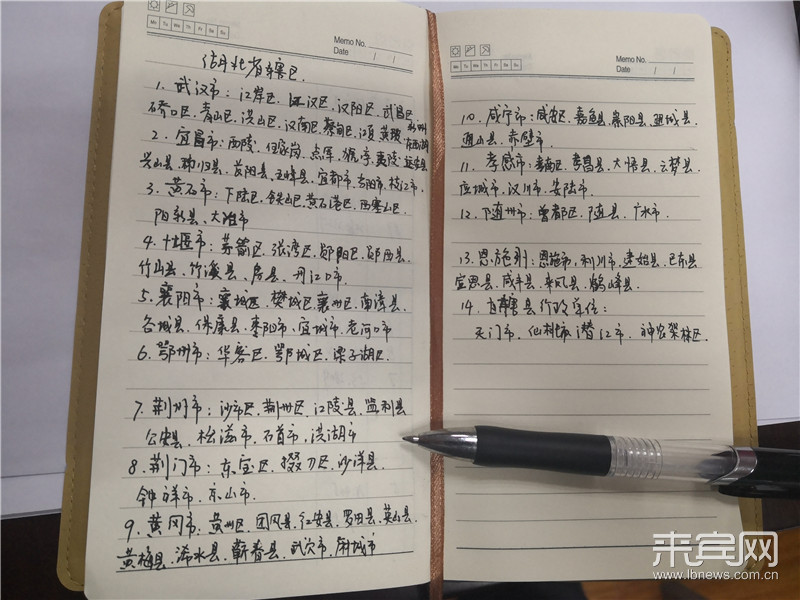 Memo No.
Mo Tu We Th Fr Sa Su
Date / /
湖北省辖区
1. 武汉市：江岸区、江汉区、汉阳区、武昌区
硚口区、青山区、洪山区、汉南区、蔡甸区、江夏、黄陂、新洲、东西湖
2. 宜昌市：西陵、伍家岗、点军、猇亭、夷陵、远安县
兴山县、秭归县、长阳县、五峰县、宜都市、当阳市、枝江市、
3. 黄石市：下陆区、铁山区、黄石港区、西塞山区、
阳新县、大冶市
4. 十堰市：茅箭区、张湾区、郧阳区、郧西县、
竹山县、竹溪县、房县、丹江口市、
5. 襄阳市：襄城区、樊城区、襄州区、南漳县、
谷城县、保康县、枣阳市、宜城市、老河口市
6. 鄂州市：华容区、鄂城区、梁子湖区、
7. 荆州市：沙市区、荆州区、江陵县、监利县
公安县、松滋市、石首市、洪湖市
8. 荆门市：东宝区、掇刀区、沙洋县、
钟祥市、京山市、
9. 黄冈市：黄州区、团风县、红安县、罗田县、英山县、
黄梅县、浠水县、蕲春县、武穴市、麻城市
Memo No.
Mo Tu We Th Fr Sa Su
Date / /
10. 咸宁市：咸安区、嘉鱼县、崇阳县、通城县、
通山县、赤壁市、
11. 孝感市：孝南区、孝昌县、大悟县、云梦县、
应城市、汉川市、安陆市、
12. 随州市：曾都区、随县、广水市、
13. 恩施州：恩施市、利川市、建始县、巴东县
宣恩县、咸丰县、来凤县、鹤峰县、
14. 直辖县行政单位：
天门市、仙桃市、潜江市、神农架林区、
来宾网
www.lbnews.com.cn